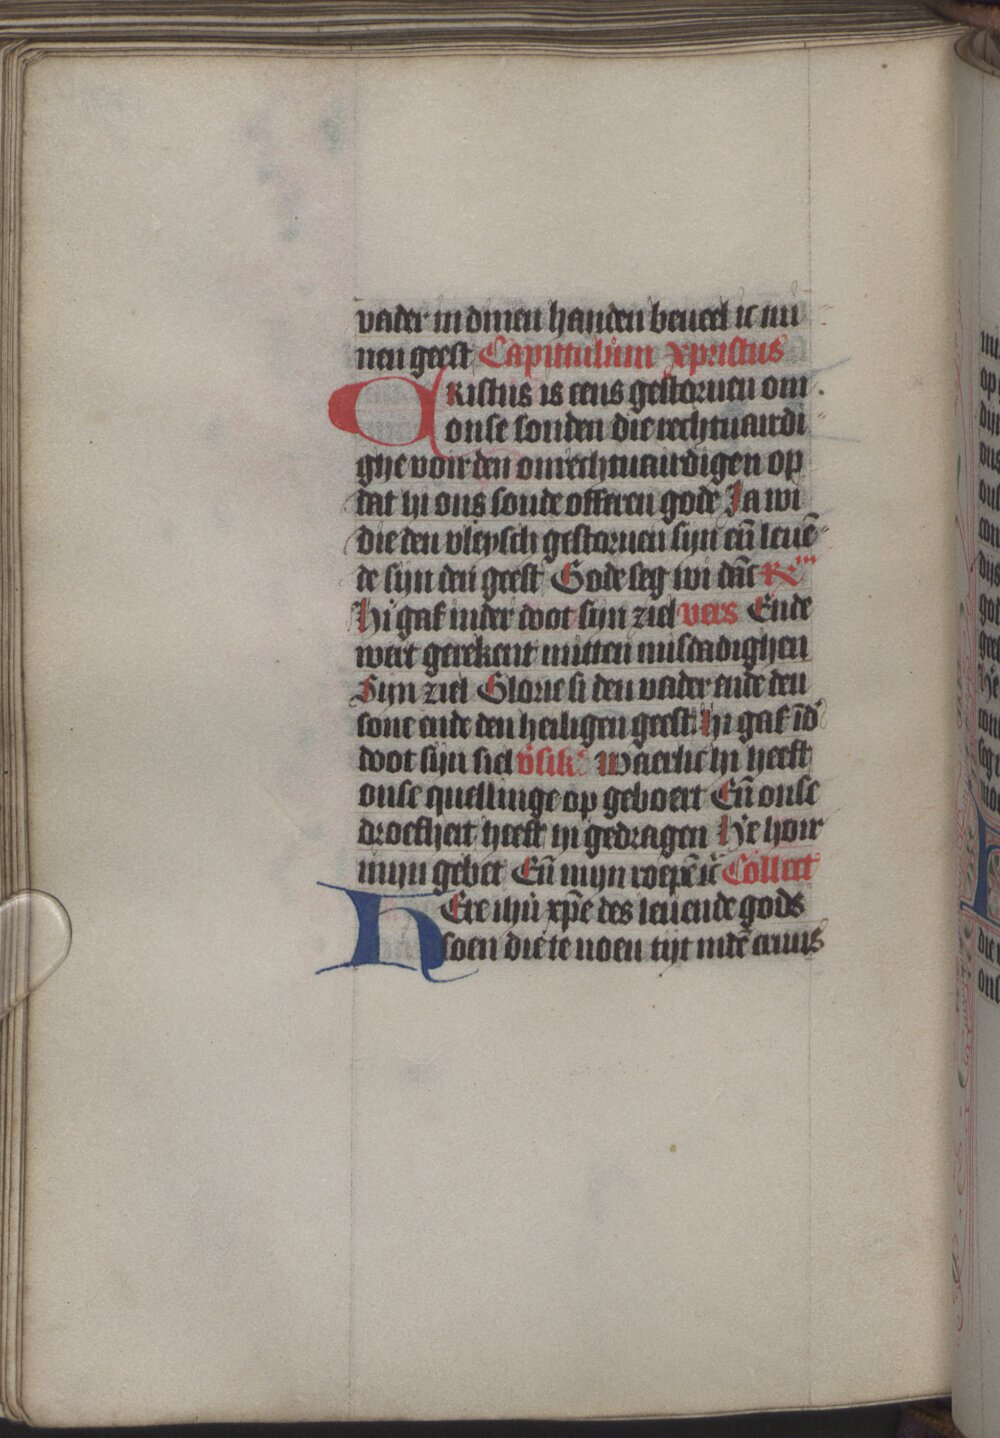 vader in dinen handen beueel ic mi
nen geest Capittulum xpristus
CRistus is eens gestoruen om
onse sonden die rechtuairdi
ghe voir den onrechtuairdigen op
dat hi ons soude offeren gode Ja wi
die den vleysch gestoruen sijn eñ leuē
de sijn den geest Gode seg wi dāc Re
Hi gaf inder doot sijn ziel vers Ende
wert gerekent mitten misdadighen
Sijn ziel Glorie si den vader ende den
sone ende den heiligen geest Hi gaf īd'
doot sijn siel v'sik' Waerlic hi heeft
onse quellinge op geboert Eñ onse
droefheit heeft hi gedragen He hoir
mijn gebet Eñ mijn roepē ic Collect
HEre ihū xpē des leuende gods
soen die te noen tijt indē cruus